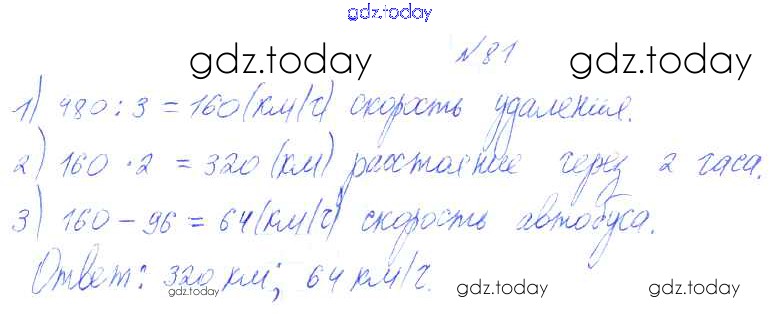 gdz.today
№ 81
gdz.today gdz.today
1) 480 : 3 = 160 (км/ч) скорость удаления.
2) 160 · 2 = 320 (км) расстояние через 2 часа.
3) 160 – 96 = 64 (км/ч) скорость автобуса.
Ответ: 320 км; 64 км/ч.
gdz.today gdz.today gdz.today